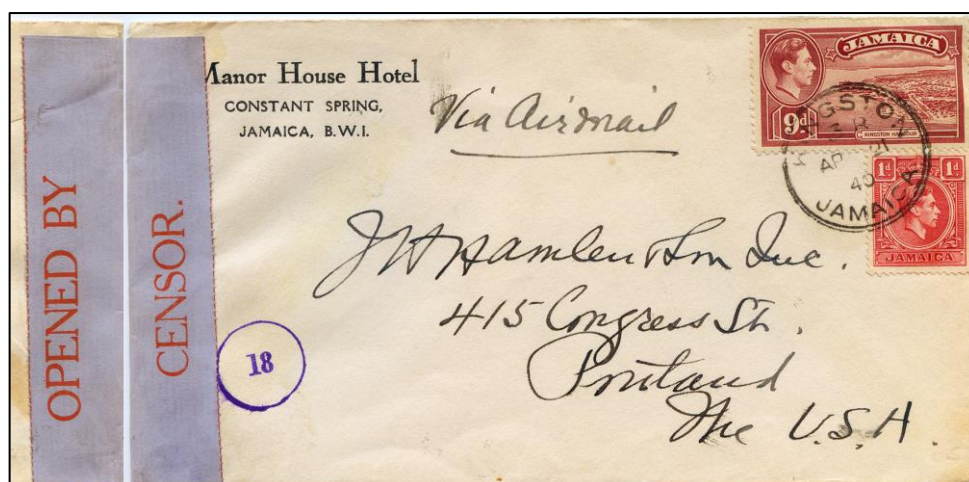 OPENED BY
CENSOR.
Manor House Hotel
CONSTANT SPRING,
JAMAICA, B.W.I.
Via Airmail
JAMAICA
9d
KINGSTON HARBOUR
KINGSTON
AP 21
40
JAMAICA
1d 1d
JAMAICA
18
J H Hamlen & Son Inc.
415 Congress St.
Portland
Me U.S.A.